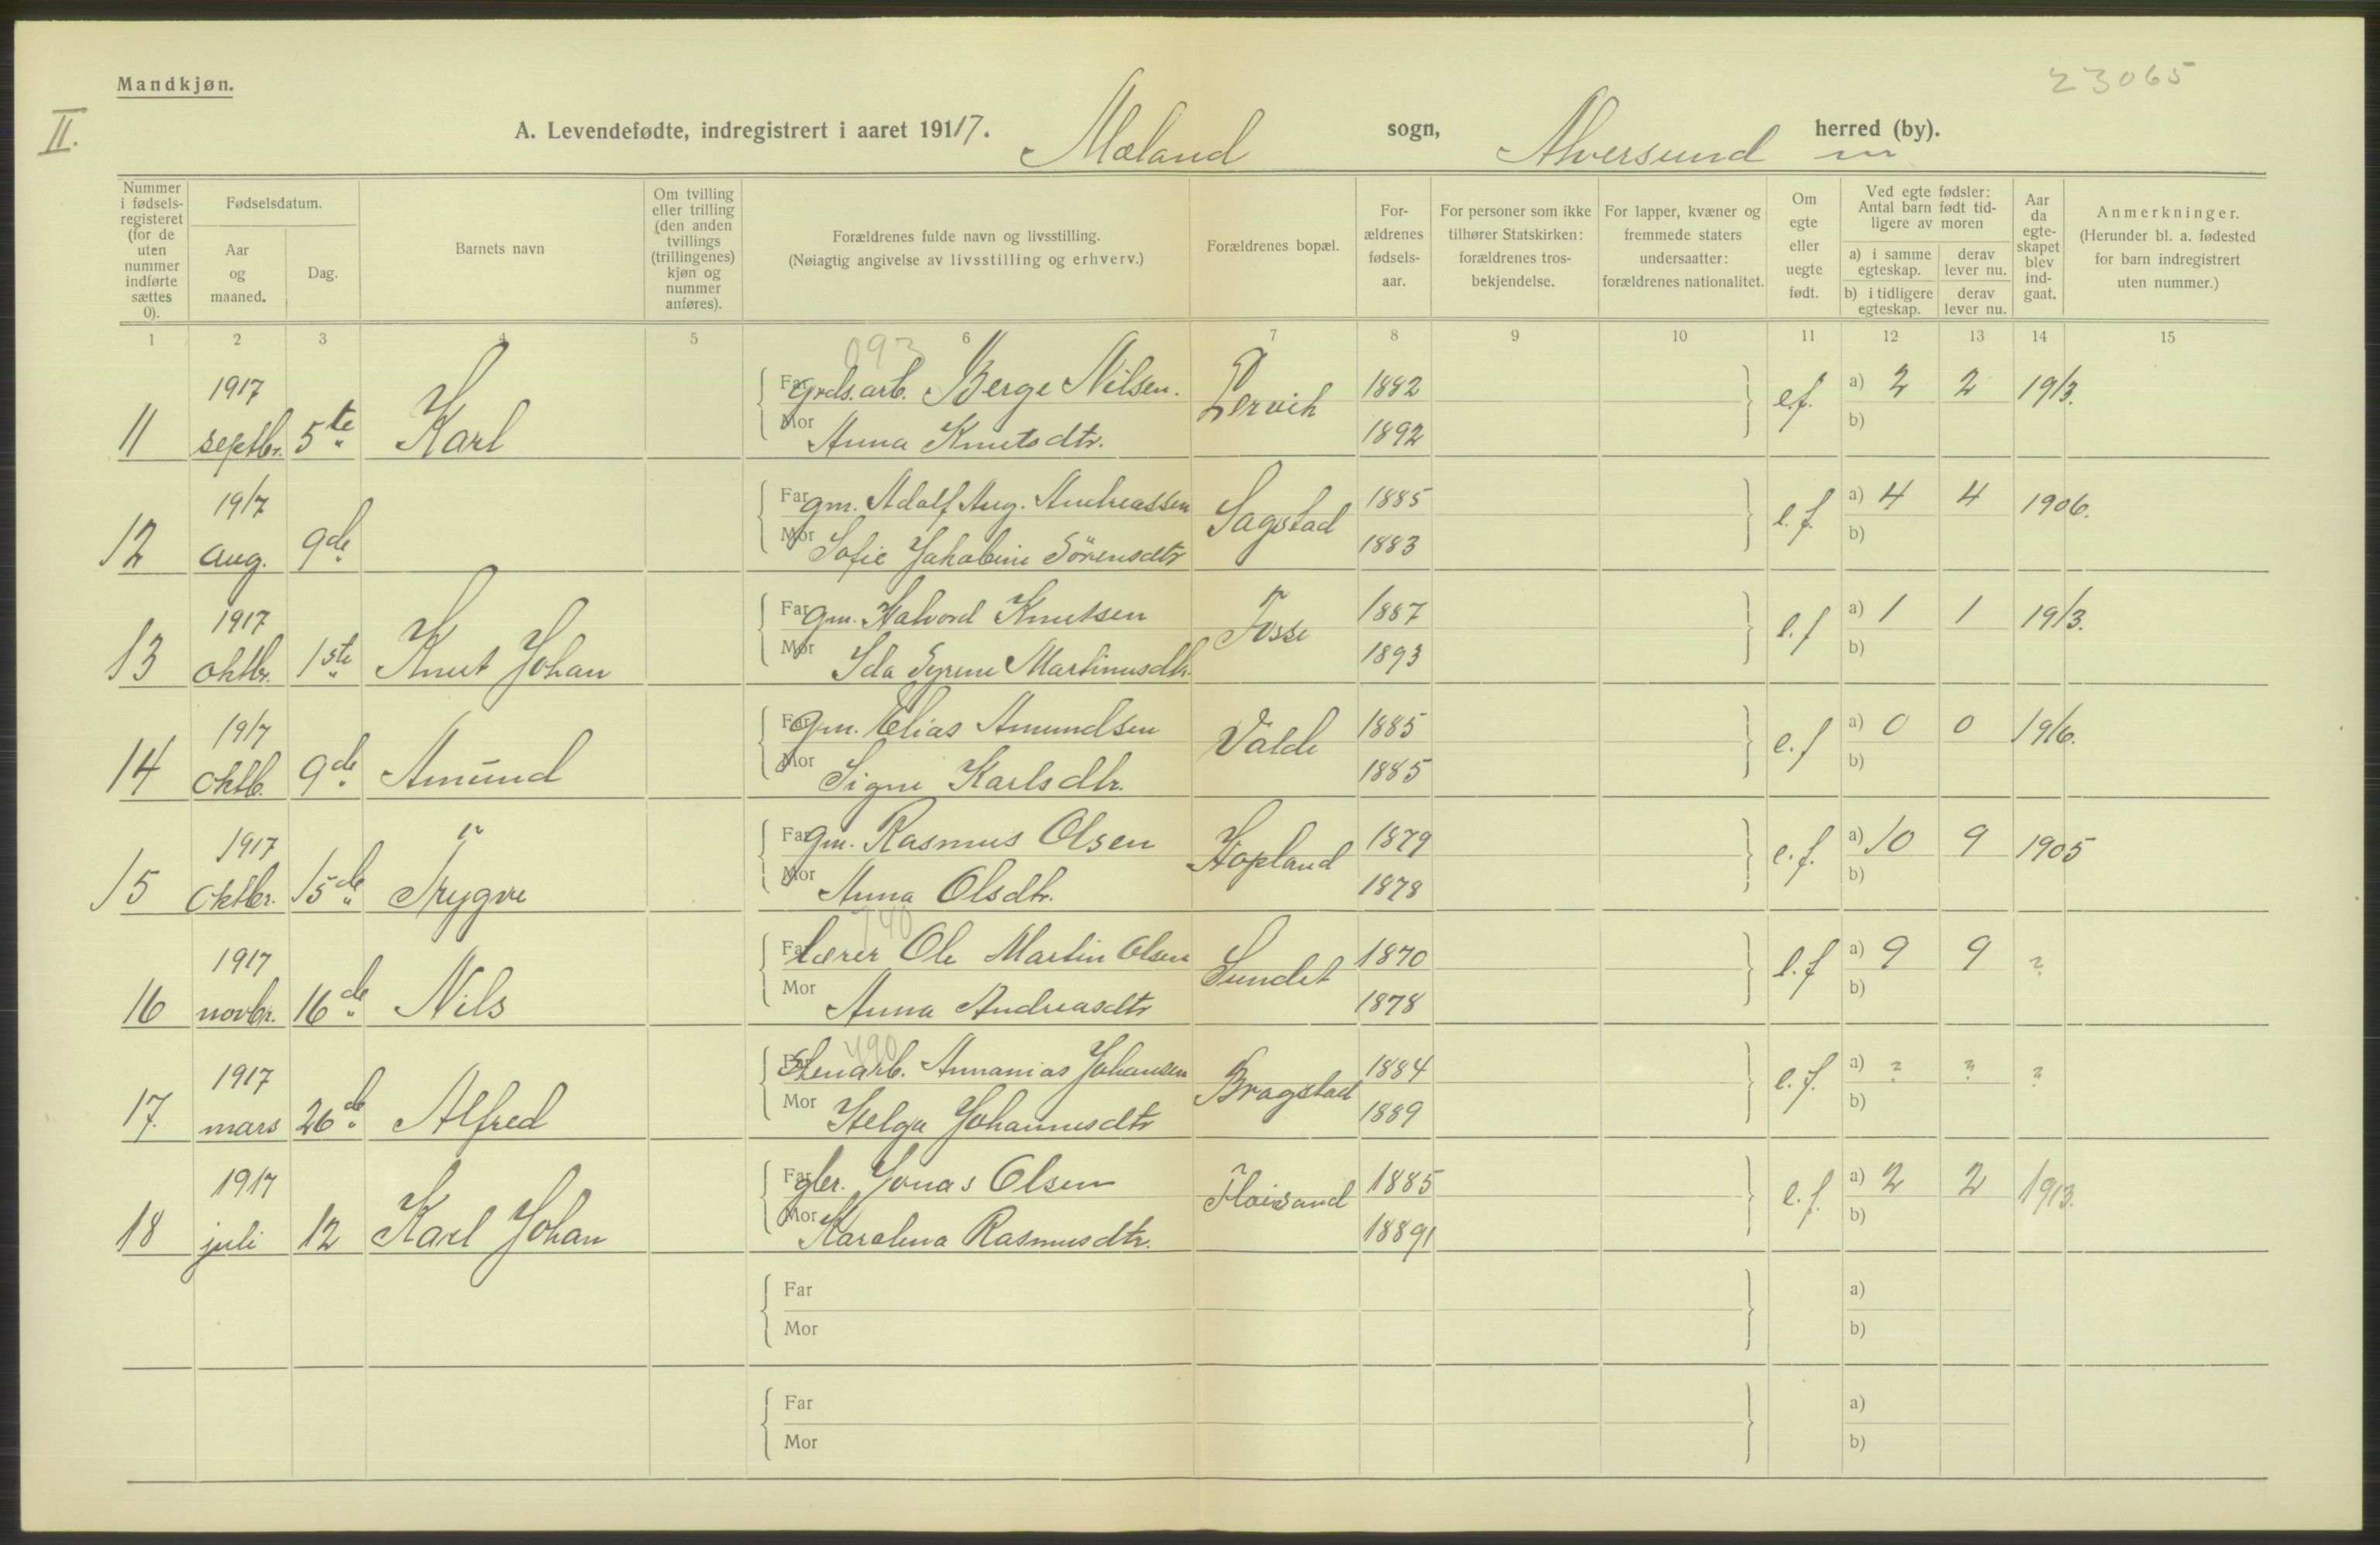 23065
Mandkjøn.
II.
A. Levendefødte, indregistrert i aaret 1917. Mæland sogn, Alversund herred (by).
Nummer i fødselsregisteret (for de uten nummer indførte sættes 0).
Fødselsdatum.
Aar og maaned.
Dag.
Barnets navn
Om tvilling eller trilling (den anden tvillings (trillingenes) kjøn og nummer anføres).
Forældrenes fulde navn og livsstilling.
(Nøiagtig angivelse av livsstilling og erhverv.)
Forældrenes bopæl.
Forældrenes fødselsaar.
For personer som ikke tilhører Statskirken: forældrenes trosbekjendelse.
For lapper, kvæner og fremmede staters undersaatter: forældrenes nationalitet.
Om egte eller uegte født.
Ved egte fødsler: Antal barn født tidligere av moren
a) i samme egteskap. derav lever nu.
b) i tidligere egteskap. derav lever nu.
Aar da egteskapet blev indgaat.
Anmerkninger.
(Herunder bl. a. fødested for barn indregistrert uten nummer.)
1 2 3 4 5 6 7 8 9 10 11 12 13 14 15
093
1917 Far grds.arb. Berge Nilsen. 1882 a) 2 2 1913.
11 septbr. 5te Karl Mor Anna Knutsdtr. 1892 e.f. b)
1917 Far gm. Adolf Aug. Andreassen Sagstad 1885 a) 4 4 1906.
12 aug. 9de Mor Sofie Jakobine Sörensdtr 1883 e.f. b)
1917 Far gm. Halvord Knutsen Fosse 1887 a) 1 1 1913.
13 oktbr. 1ste Knut Johan Mor Ida Syrene Martinusdtr. 1893 e.f b)
1917 Far gm. Elias Amundsen Valde 1885 a) 0 0 1916.
14 oktb. 9de Amund Mor Signe Karlsdtr. 1885 e.f b)
1917 Far gm. Rasmus Olsen Hopland 1879 a) 10 9 1905
15 oktbr. 15de Trygve Mor Anna Olsdtr. 1878 e.f. b)
740
1917 Far lærer Ole Martin Olsen Sundet 1870 a) 9 9 ?
16 novbr. 16de Nils Mor Anna Andreasdtr 1878 e.f b)
490
1917 Far Stenarb. Annanias Johansen Bragstad 1884 a) ? ? ?
17. mars 26de Alfred Mor Helga Johannesdtr 1889 e.f. b)
1917 Far gbr. Jonas Olsen Floisand 1885 a) 2 2 1913.
18 juli 12 Karl Johan Mor Karolina Rasmusdtr. 18891 e.f. b)
Far a)
Mor b)
Far a)
Mor b)